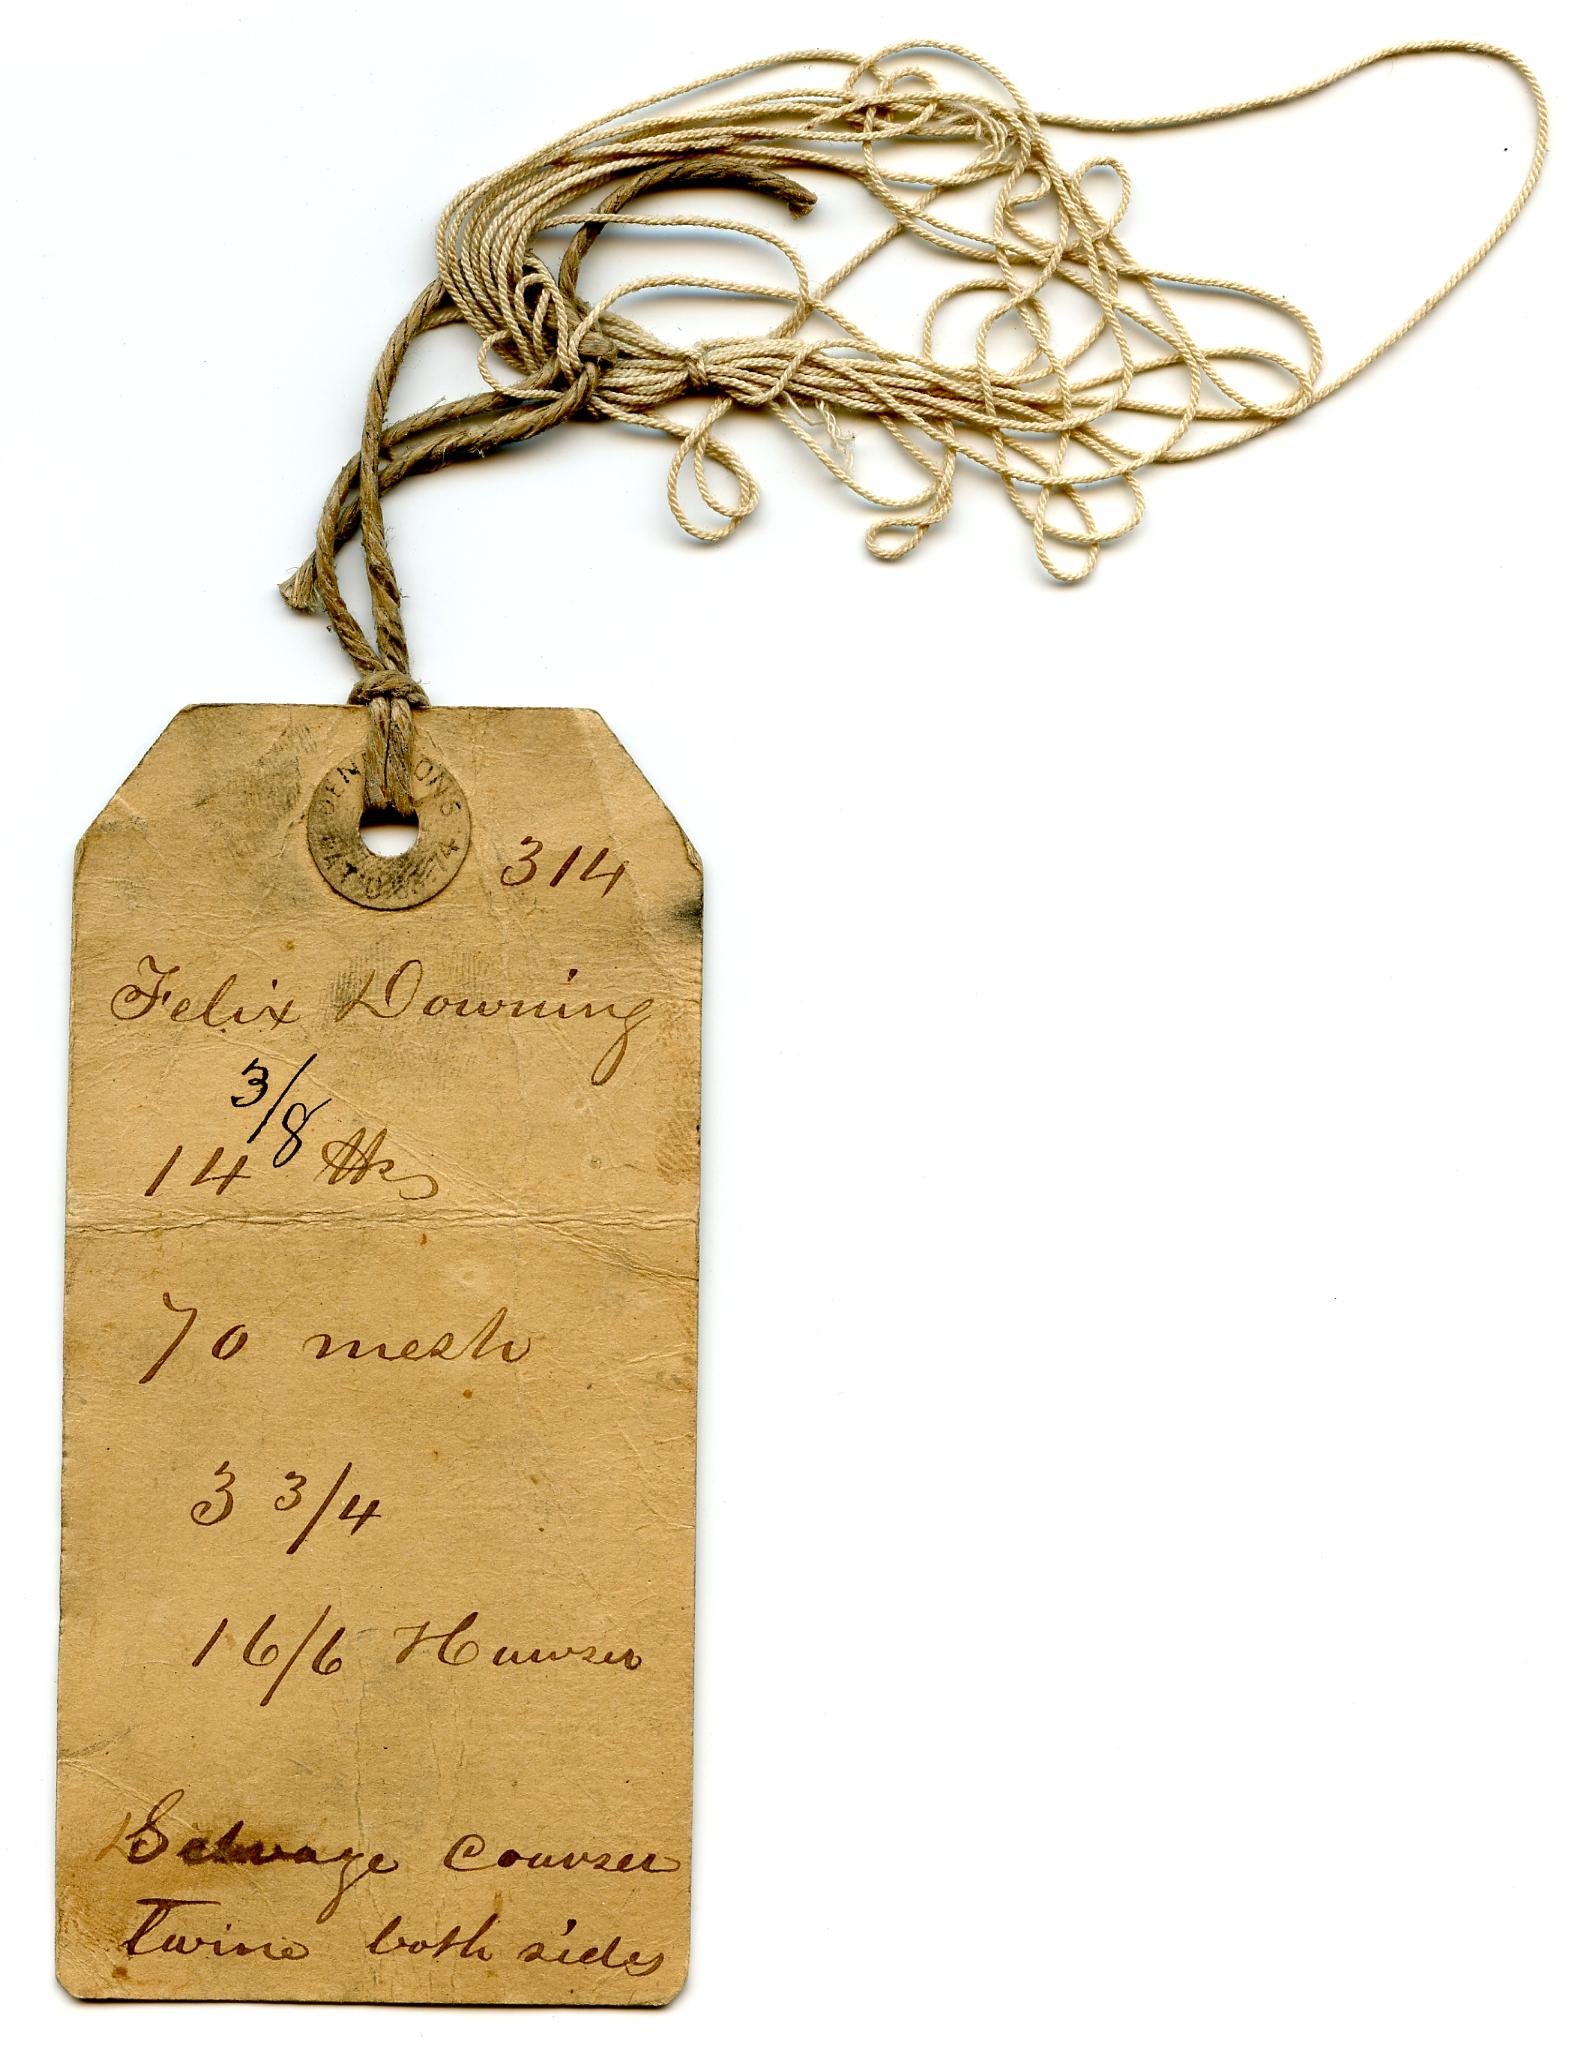 314
Felix Downing
14 3/8 lbs
70 mesh
3 3/4
16/6 Hawser
Selvage Courser
Twine both sides